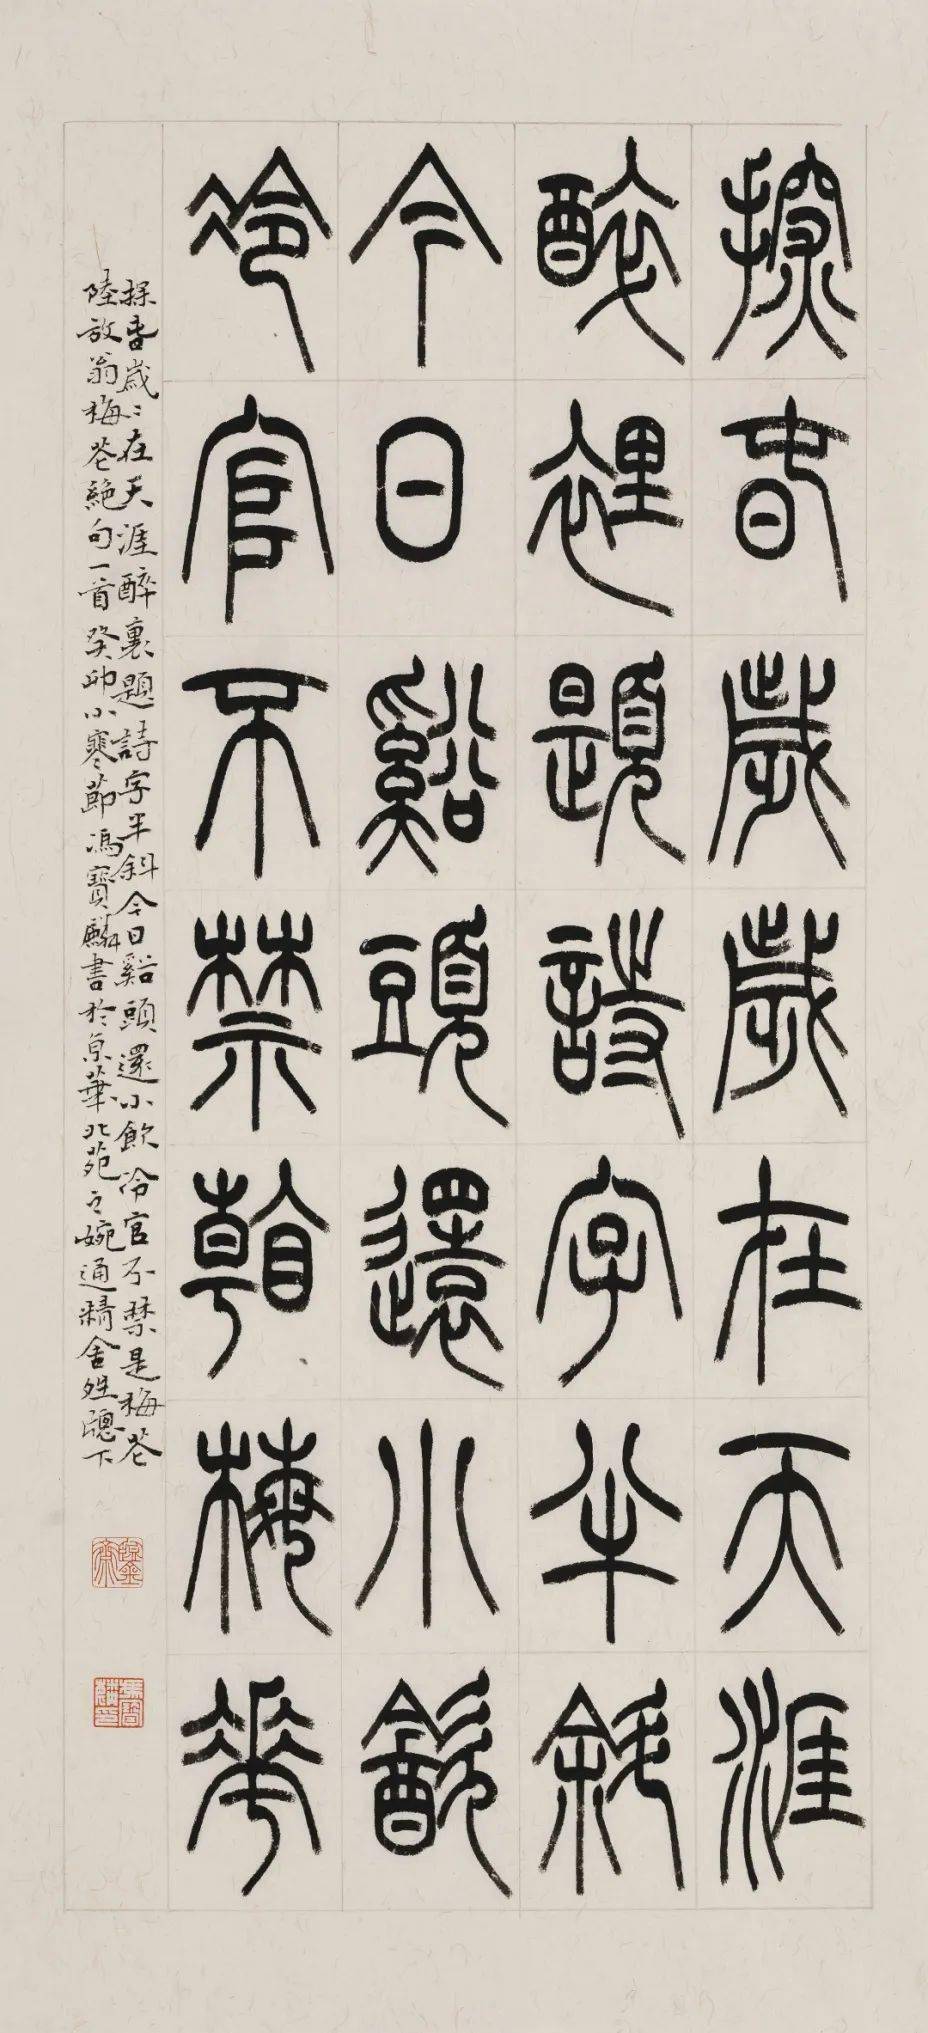 探春歲歲在天涯
醉裡題詩字半斜
今日谿頭還小飲
冷官不禁看梅花
探春歲〻在天涯醉裏題詩字半斜今日谿頭還小飲冷官不禁看梅花
陸放翁梅花絕句一首癸卯小寒節馮寶麟書於京華北苑之婉通精舍夝牕下
馮寶麟印